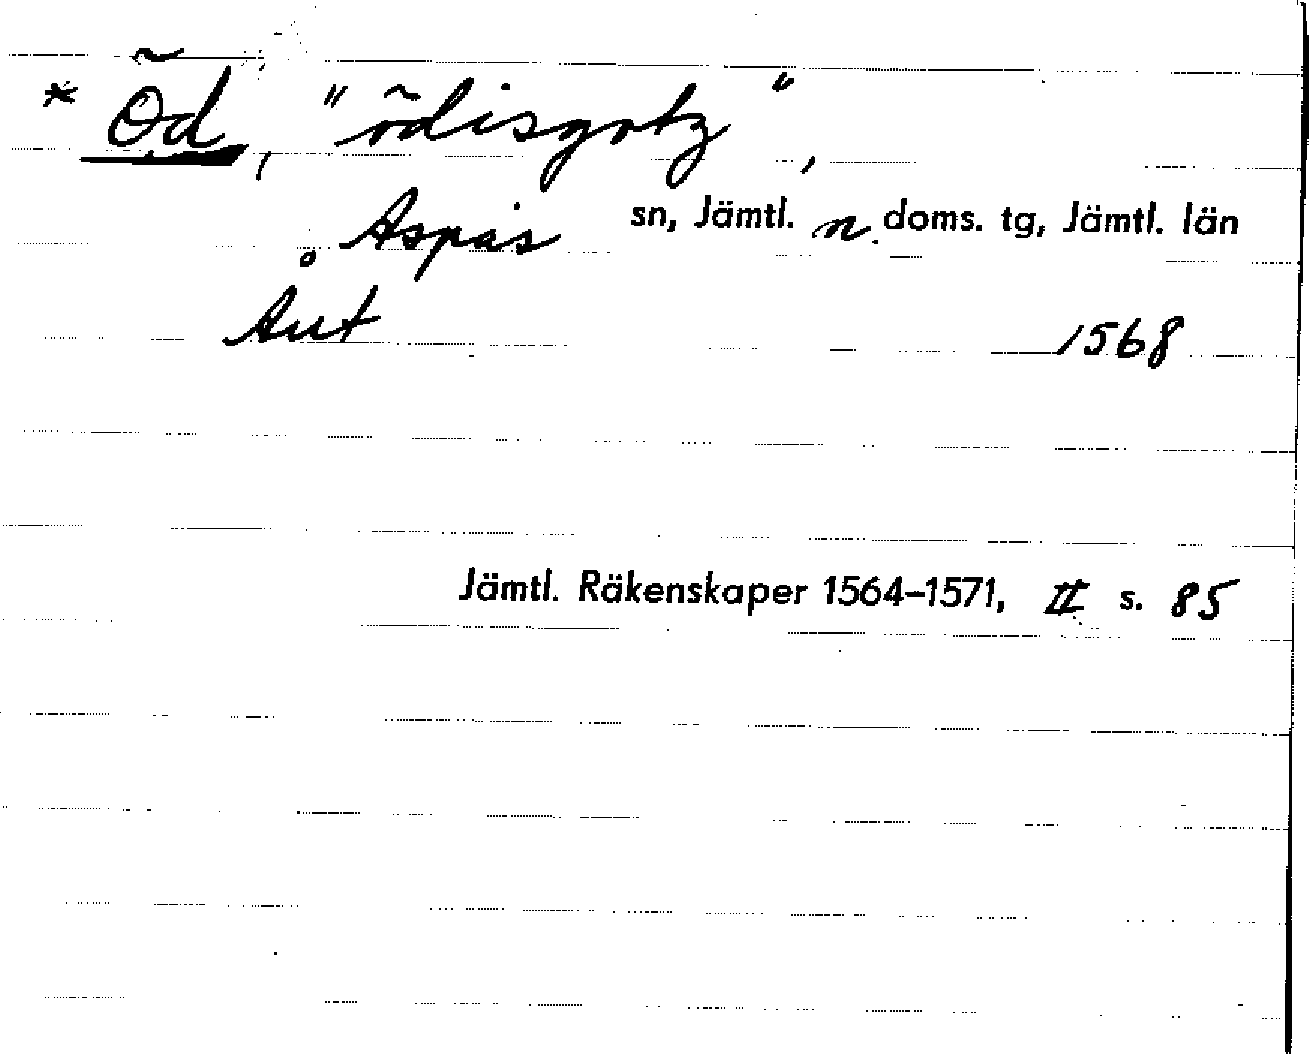 * Öd, "ödisgotz",
Aspås sn, Jämtl. n. doms. tg, Jämtl. län
1568
Jämtl. Räkenskaper 1564–1571, II s. 85